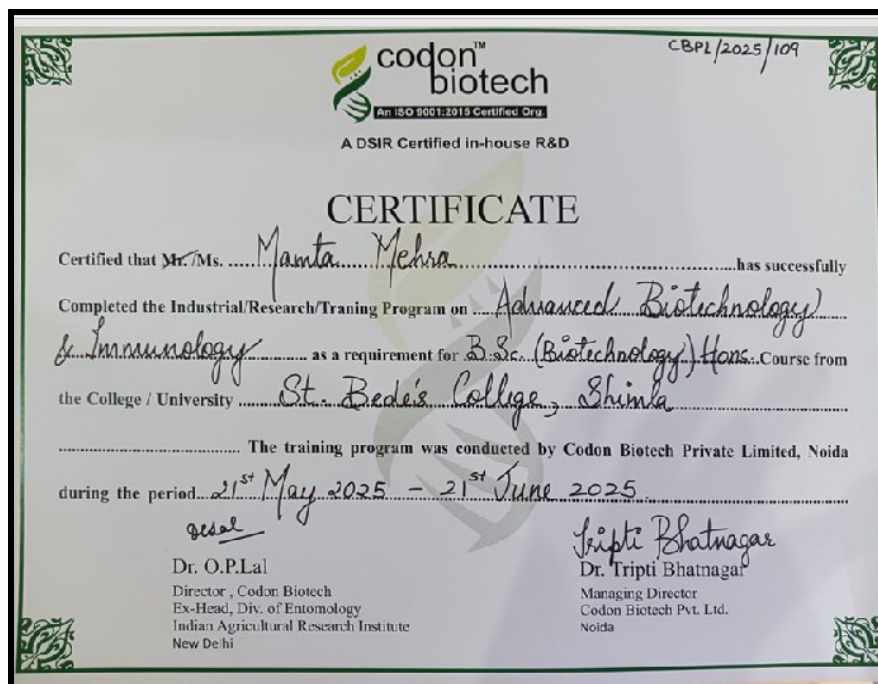 CBPL/2025/109
codon™
biotech
An ISO 9001:2015 Certified Org.
A DSIR Certified in-house R&D
CERTIFICATE
Certified that Mr./Ms. .....Mamta Mehra..............................................has successfully
Completed the Industrial/Research/Traning Program on .....Advanced Biotechnology
& Immunology.............. as a requirement for B.Sc. (Biotechnology) Hons..Course from
the College / University ..........St. Bede's College, Shimla..............................
.......................................... The training program was conducted by Codon Biotech Private Limited, Noida
during the period...21st May 2025 - 21st June 2025..............................
Tripti Bhatnagar
Dr. O.P.Lal
Director , Codon Biotech
Ex-Head, Div. of Entomology
Indian Agricultural Research Institute
New Delhi
Dr. Tripti Bhatnagar
Managing Director
Codon Biotech Pvt. Ltd.
Noida